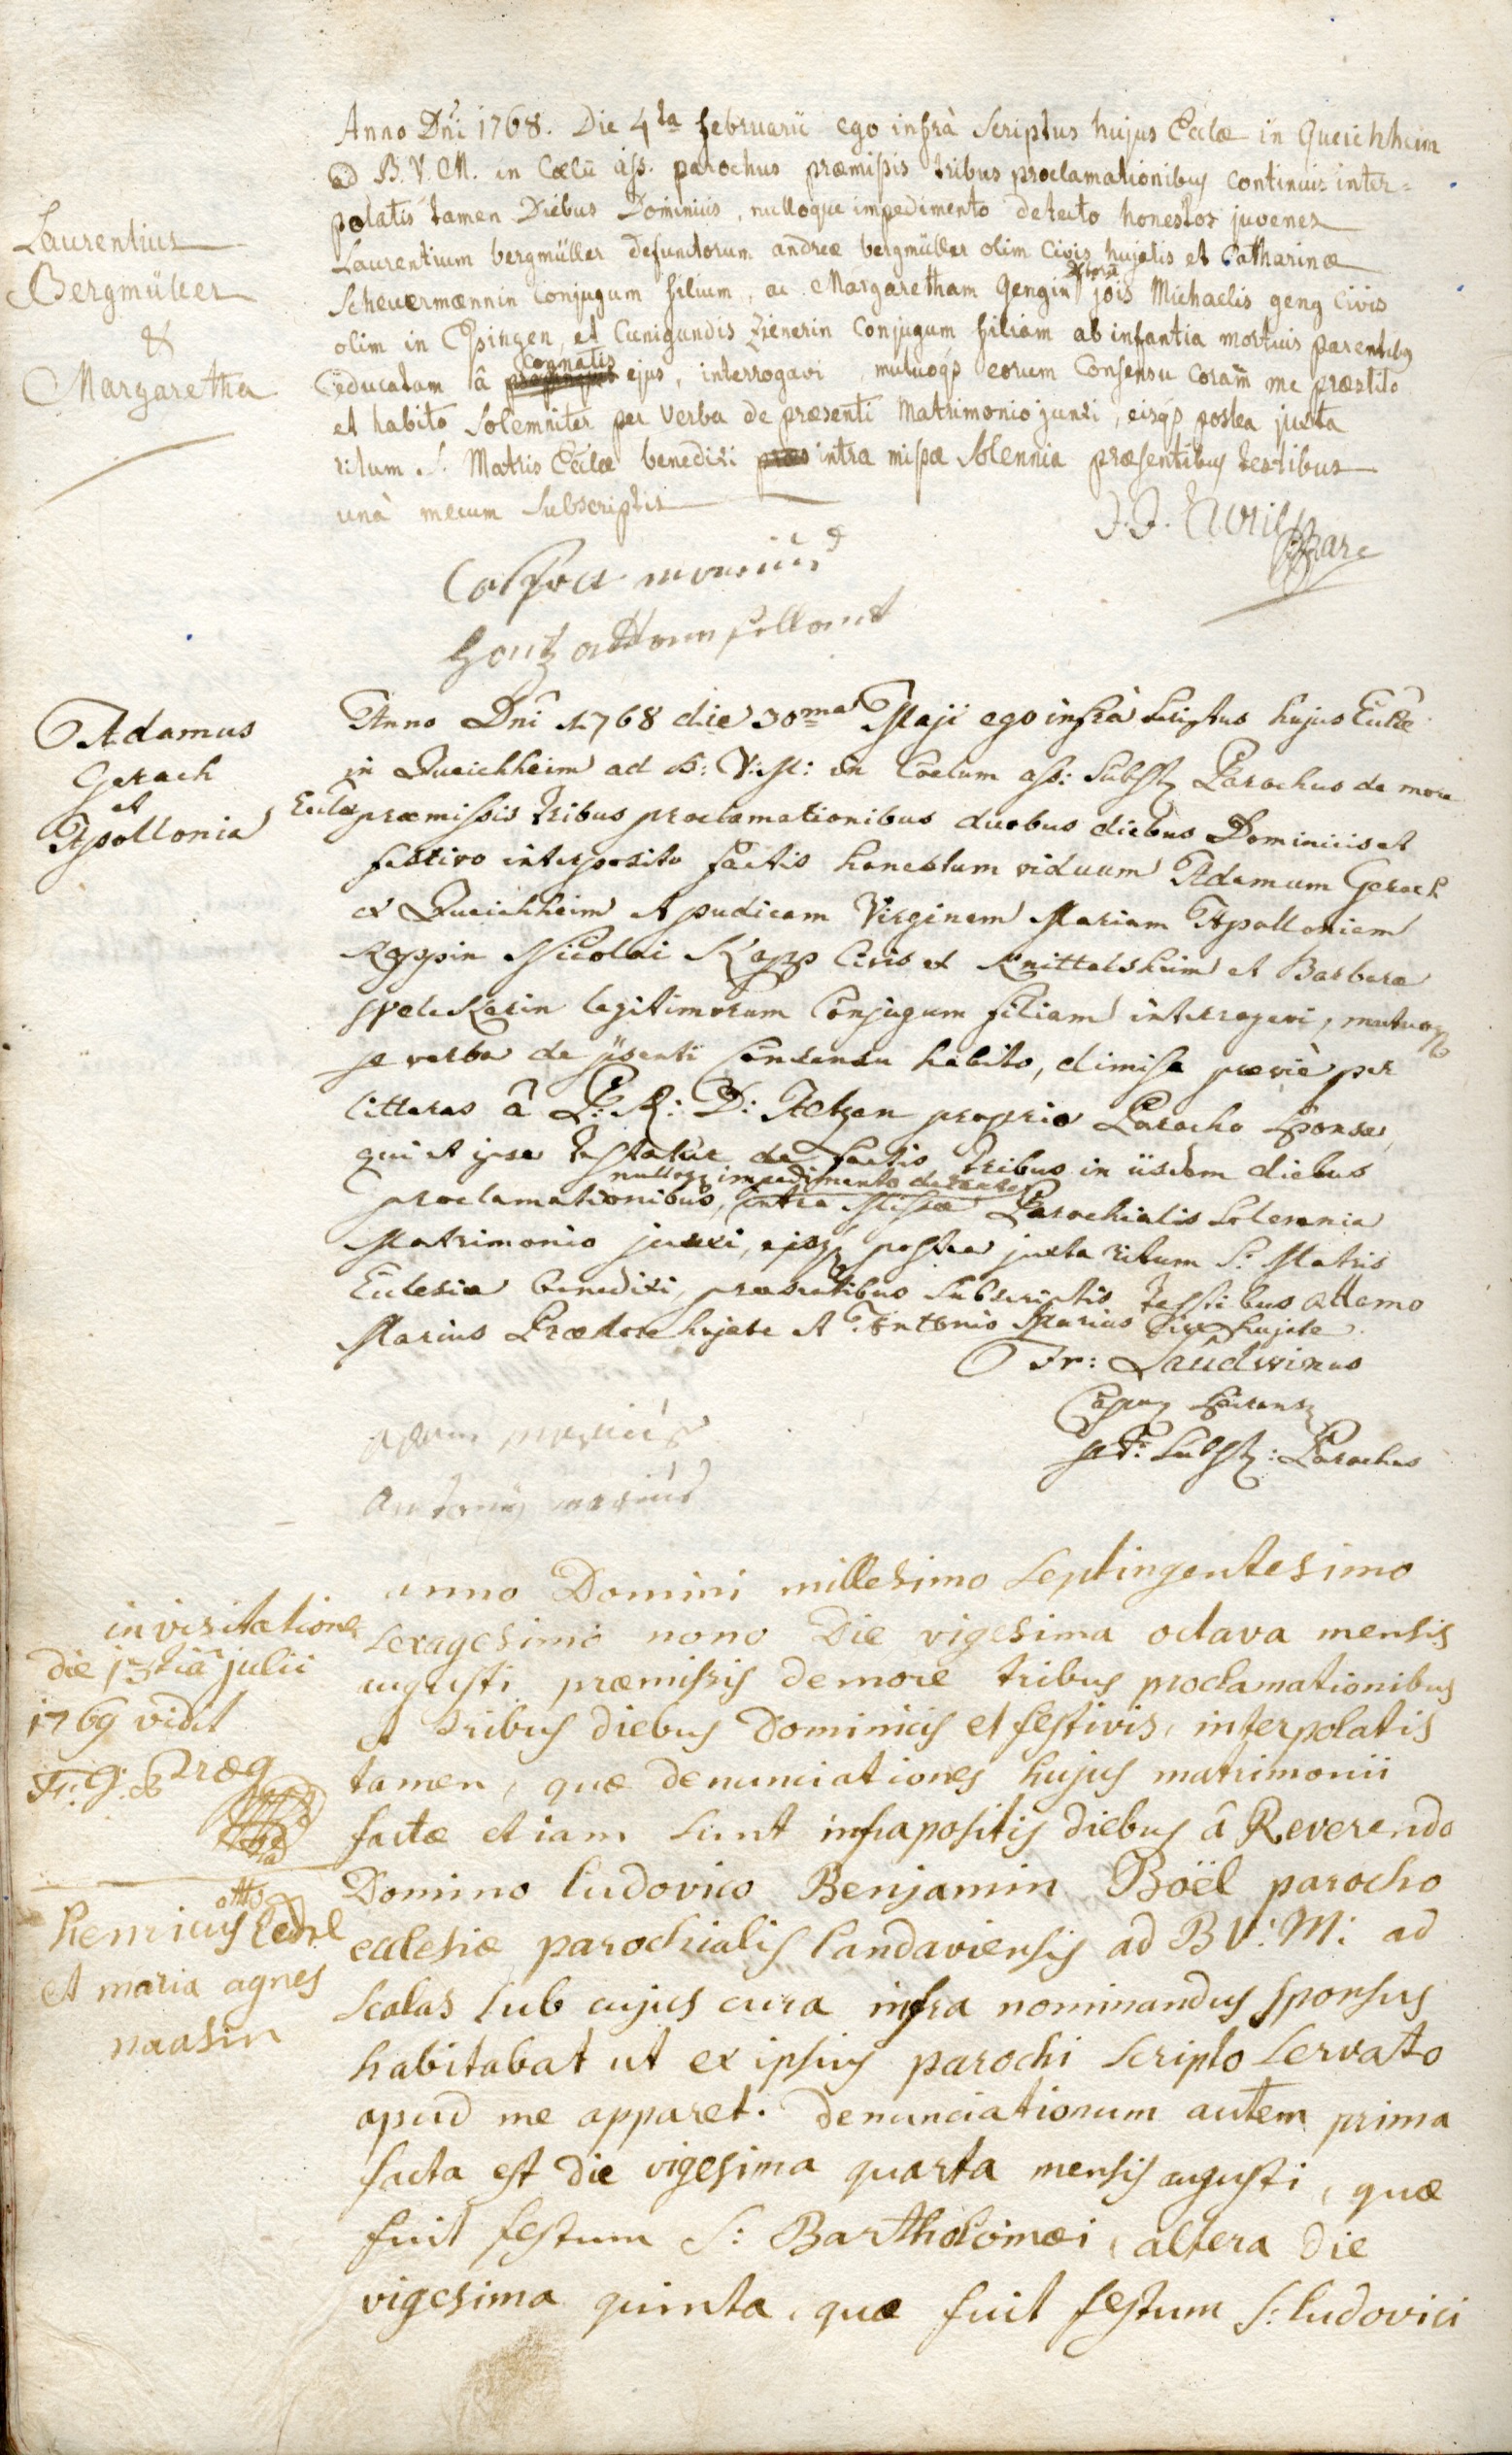 Anno Dñi 1768. Die 4ta februarii ego infrà scriptus hujus Ecclæ in Queichheim
ad B. V. M. in Cœlũ ass. parochus præmissis tribus proclamationibus continuis inter=
polatis tamen Diebus Dominicis, nulloque impedimento detecto honestos juvenes
Laurentius
Bergmüller
&
Margaretha
Laurentium bergmüller defunctorum andreæ bergmüller olim Civis hujatis et Catharinæ
Scheuermænnin conjugum filium, ac Margaretham Gengin jõis Michaelis geng civis
olim in Essingen, et Cunigundis Zienerin Conjugum filiam ab infantia mortuis parentibus
educatam â cognatis ejus, interrogavi, mutuoq̃ eorum Consensu coram me præstito
et habito Solemniter per verba de præsenti Matrimonio junxi, eisq̃ postea juxta
ritum S. Matris Ecclæ benedixi intra missæ Solennia præsentibus testibus
unà mecum Subscriptis
J. J.
Adamus
Gerach
et
Apollonia
Anno Dñi 1768 die 30ma Maji ego infrà scriptus hujus Ecclæ
in Queichheim ad B: V: M: in Coelum ass: Subst Parochus de more
Ecclæ præmissis tribus proclamationibus duobus diebus Dominicis et
festivo interposito factis honestum viduum Adamum Gerach
ex Queichheim et pudicam Virginem Mariam Apolloniam
Kappin Nicolai Kapp Civis ex Knittelsheim et Barbaræ
legitimorum Conjugum filiam interrogavi, mutuoq̃
p verba de p̃senti Consensu habito, dimissa præviè per
litteras â P: R: D: proprio Parocho Sponsæ,
qui et ipse testatur de factis tribus in iisdem diebus
nulloq̃ impedimento detecto
proclamationibus, intra Missæ Parochialis Solemnia
Matrimonio junxi, eisq̃ postea juxta ritum S: Matris
Ecclesiæ benedixi, præsentibus Subscriptis testibus Adamo
Marius Prætore hujate et Antonio Marius Cive hujate.
Fr: Laudwinus
Subst: Parochus
adam marius
Antoni marius
in visitatione
die 13tia julii
1769 vidit
anno Domini millesimo Septingentesimo
Sexagesimo nono Die vigesima octava mensis
augusti præmissis de more tribus proclamationibus
et tribus diebus Dominicis et festivis, interpolatis
tamen, quæ denunciationes hujus matrimonii
factæ etiam sunt infrapositis diebus â Reverendo
Henricus otto
et maria agnes
naasin
Domino ludovico Benjamin Boël parocho
ecclesiæ parochialis landaviensis ad B V: M: ad
scalas sub cujus cura infra nominandus sponsus
habitabat ut ex ipsius parochi scripto servato
apud me apparet. denunciationum autem prima
facta est die vigesima quarta mensis augusti, quæ
fuit festum S: Bartholomæi, altera die
vigesima quinta, quæ fuit festum S: ludovici